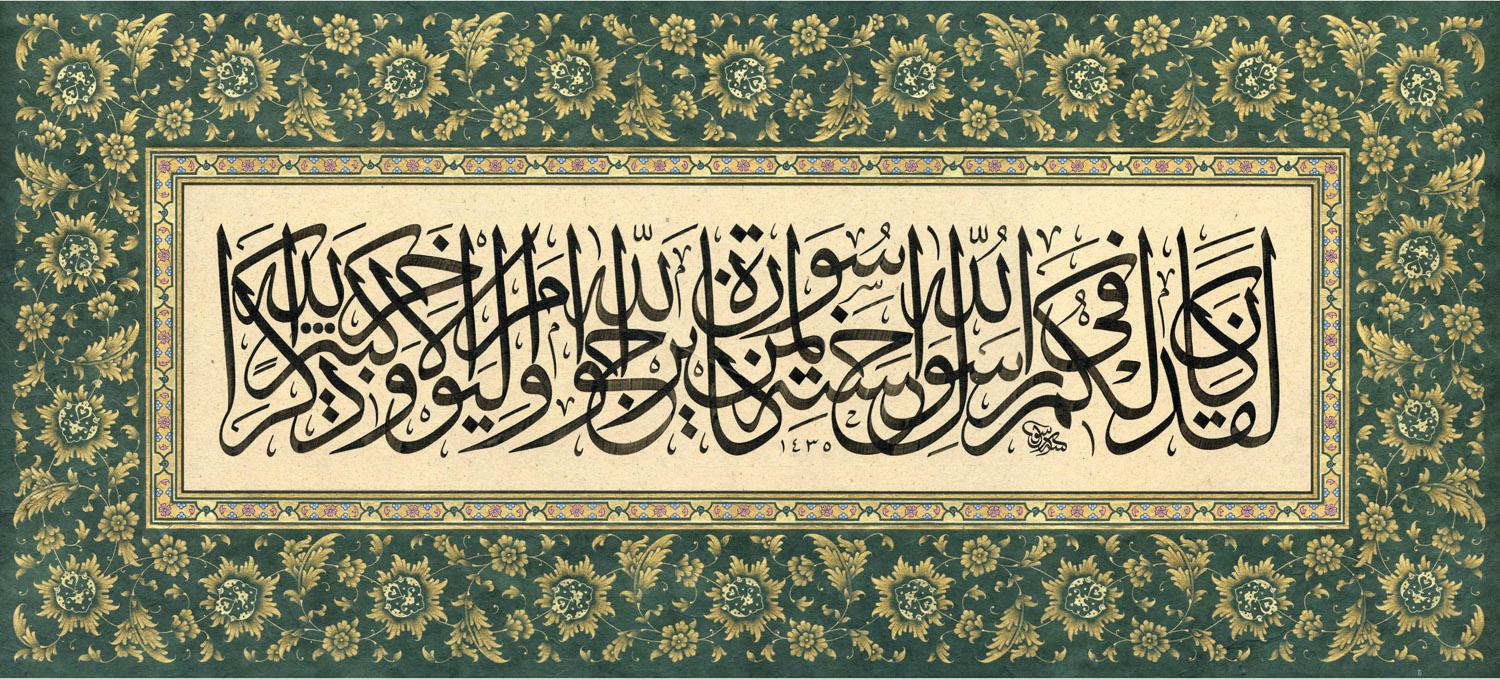 لقد كان لكم في رسول الله اسوة حسنة لمن كان يرجوا الله واليوم الاخر وذكر الله كثيرا
١٤٣٥